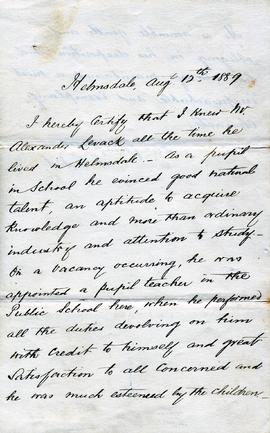 Helmsdale, Augt 12th 1889
I hereby Certify that I Knew Mr.
Alexander Levack all the time he
lives in Helmsdale - as a pupil
in School he evinced good natural
talent, an aptitude to acquire
Knowledge and more than ordinary
industry and attention to study -
On a vacancy occurring, he was
appointed a pupil teacher in the
Public School here, when he performed
all the duties devolving on him
with credit to himself and great
Satisfaction to all Concerned and
he was much esteemed by the children -